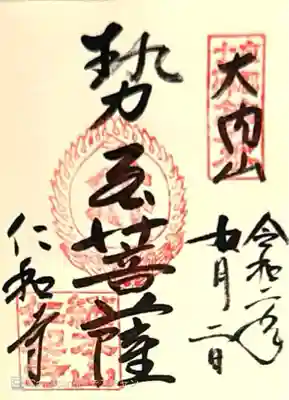 大内山
令和二年
月二日
勢至菩薩
仁和寺